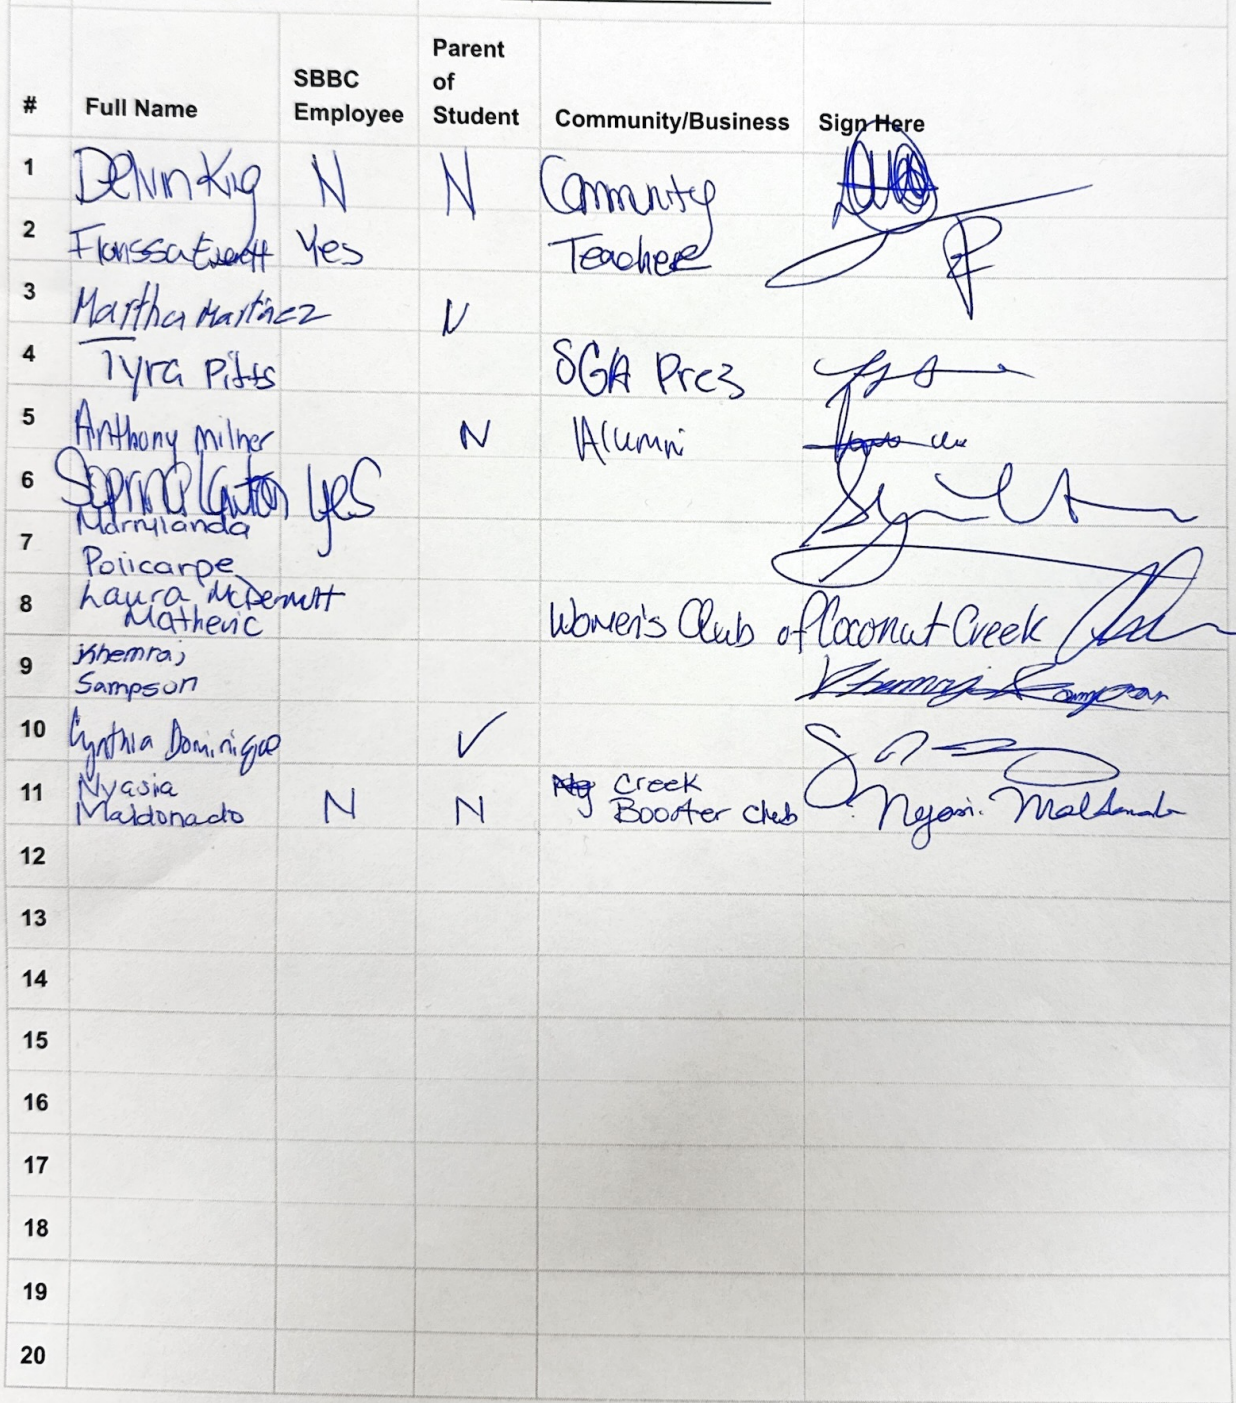 # Full Name SBBC Employee Parent of Student Community/Business Sign Here
1 Delvin King N N Community
2 Yes Teacher
3 Martha Martinez N
4 Tyra Pitts SGA Prez
5 Anthony Milner N Alumni
6 Yes
7 Marrylanda
Policarpe
8 Laura McDermott
Mathevic Women's Club of Coconut Creek
9 Khemraj
Sampson Khemraj Sampson
10 Cynthia Dominique ✓
11 Nyasia
Maldonado N N Creek
Booster Club Nyasia Maldonado
12
13
14
15
16
17
18
19
20